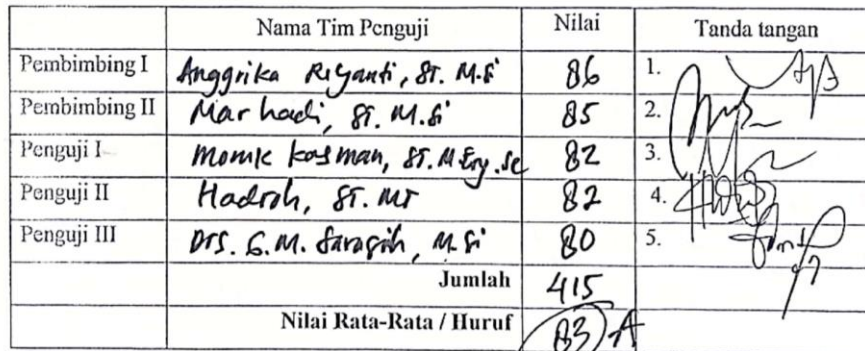 Nama Tim Penguji Nilai Tanda tangan
Pembimbing I Anggrika Riyanti, ST. M.Si 86 1.
Pembimbing II Marhadi, ST. M.Si 85 2.
Penguji I Monik Kasman, ST. M.Eng.Sc 82 3.
Penguji II Hadrah, ST. MT 82 4.
Penguji III Drs. G.M. Saragih, M.Si 80 5.
Jumlah 415
Nilai Rata-Rata / Huruf 83 A